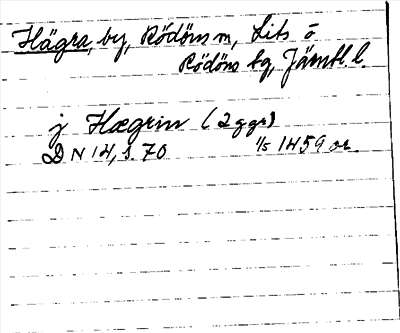 Hägra, by, Rödöns sn, Lits o
Rödöns tg, Jämtl. l.
j Hægrin (2 ggr)
DN 14, s. 70 1/5 1459 or.